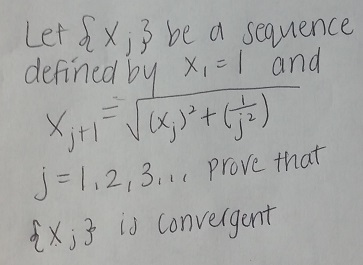 Let {x_j} be a sequence
defined by x₁ = 1 and
x_{j+1} = √((x_j)² + (1/j²))
j = 1, 2, 3... prove that
{x_j} is convergent